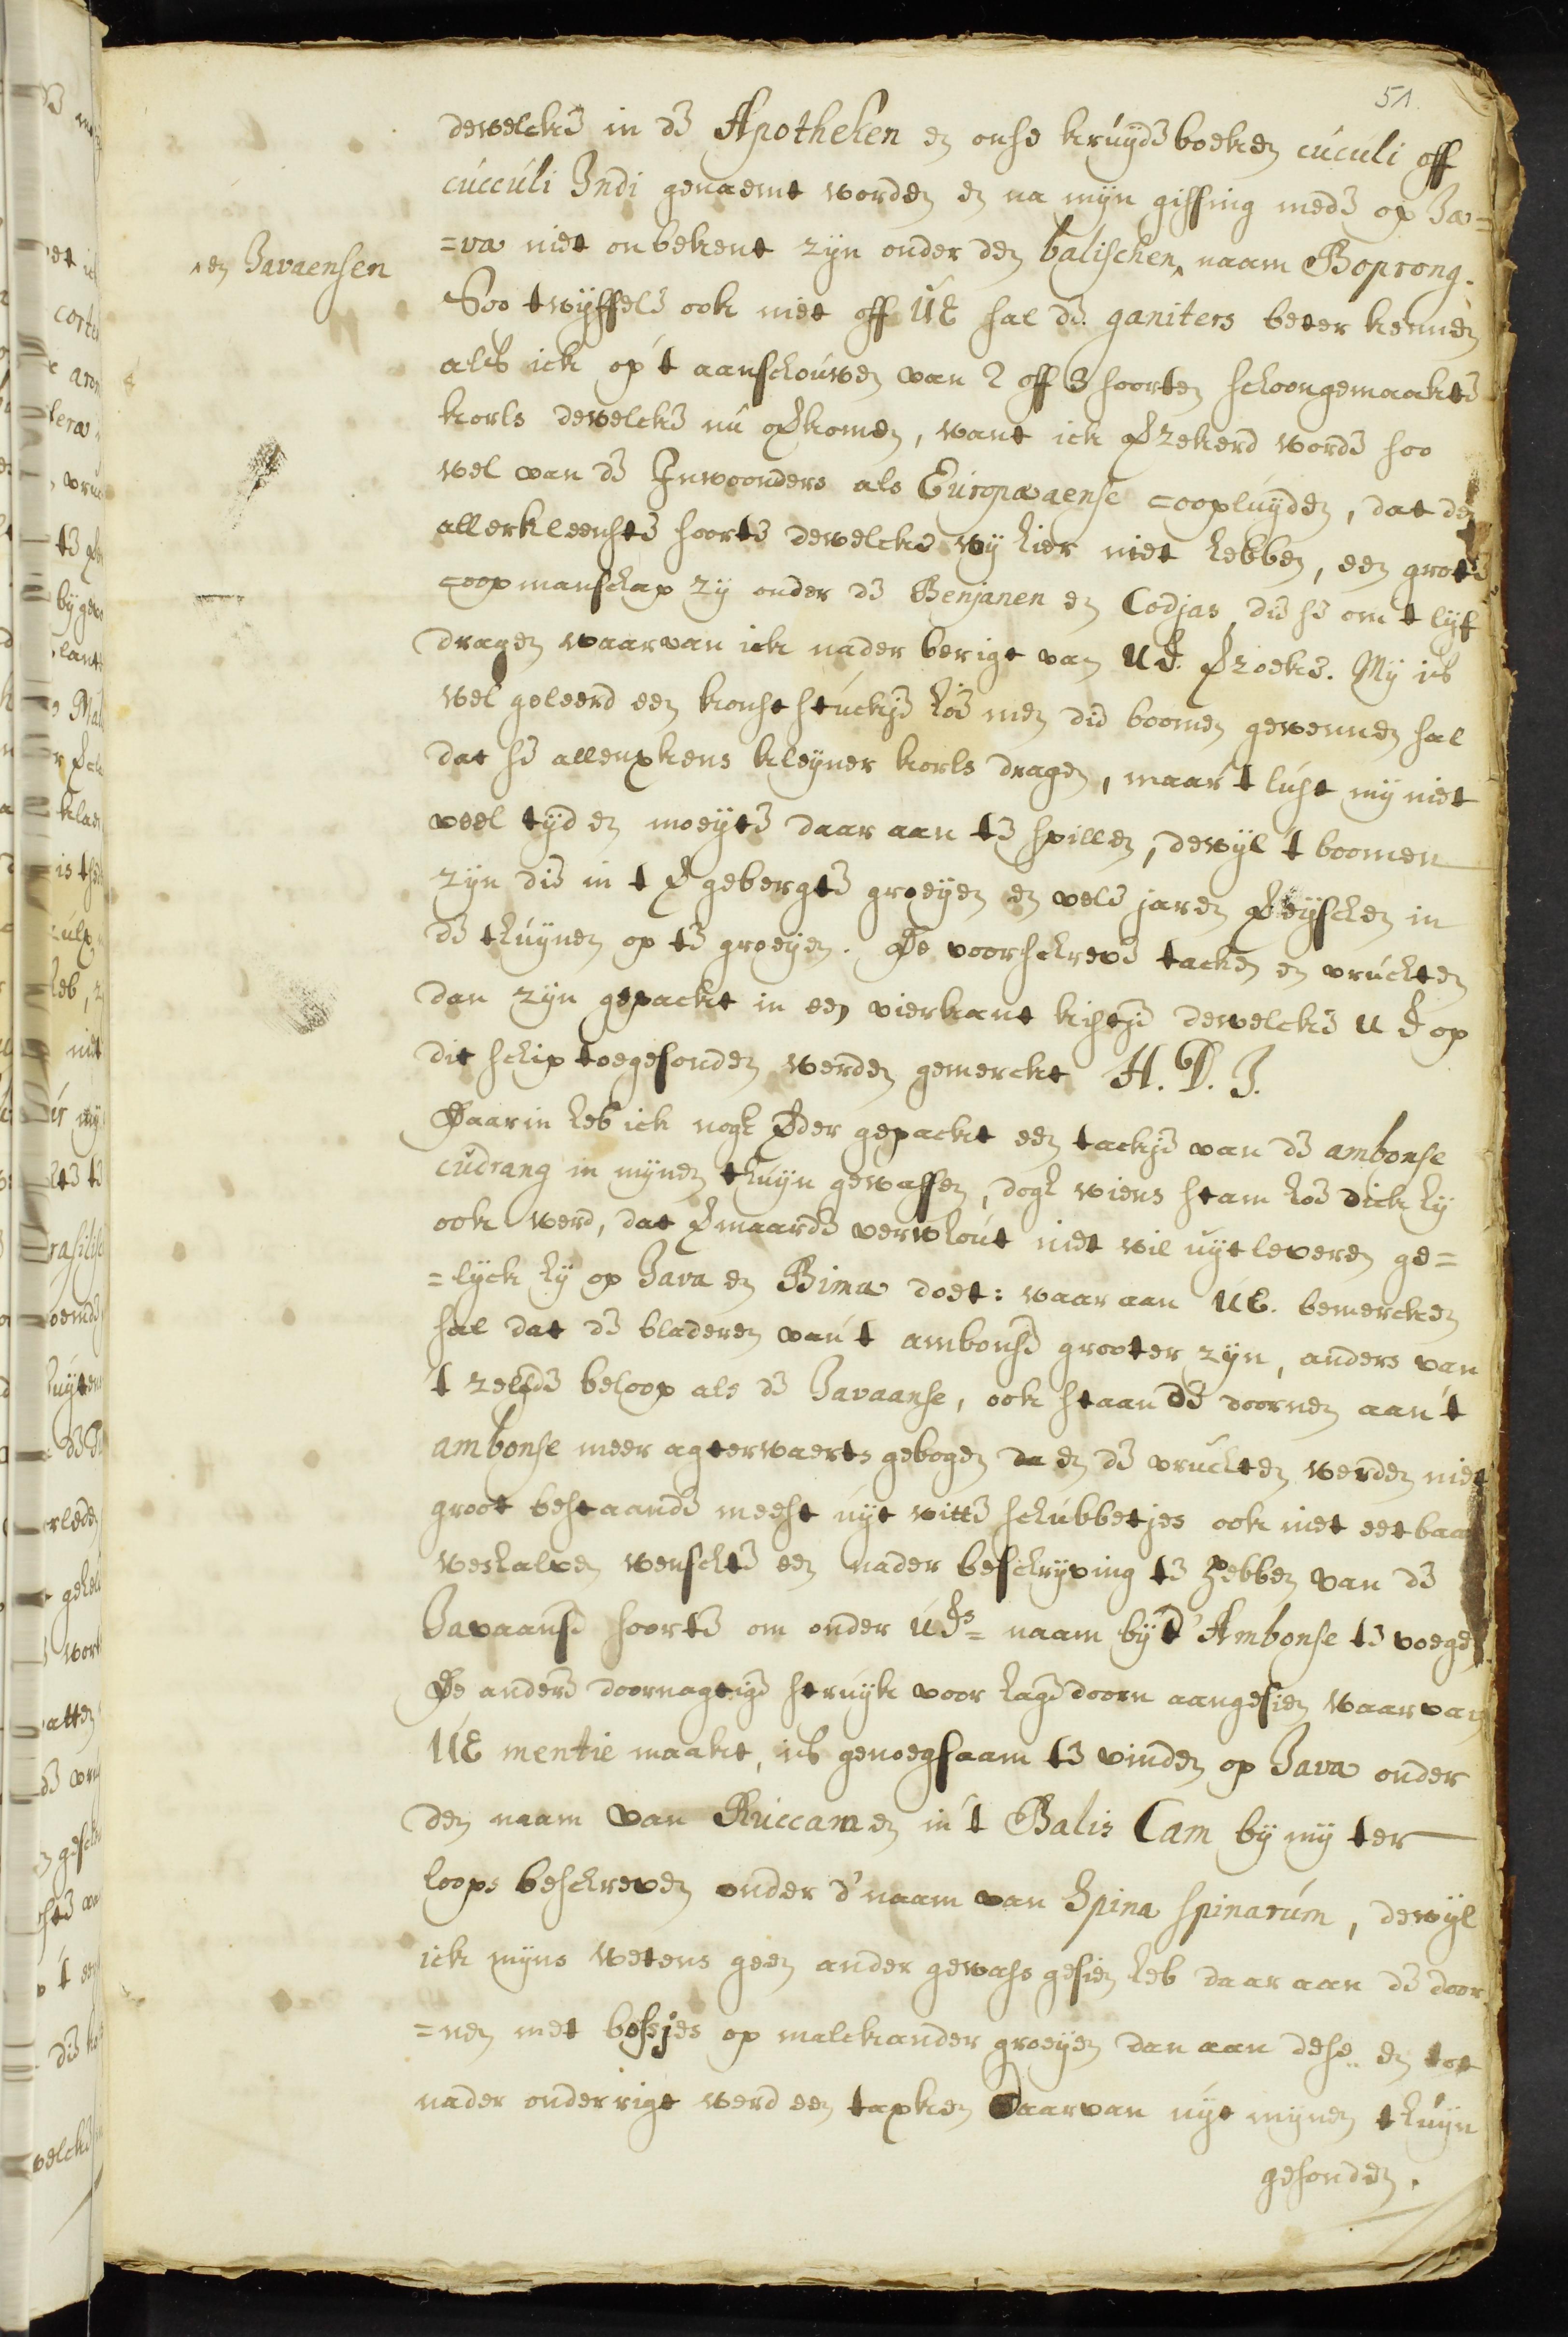 51.
dewelcke in de Apotheken en onse kruijdeboeken cúcúli off
cúccúli Indi genaemt worden en na mijn gissing mede op Ja=
=va niet onbekent zijn onder den balischen ‸ naam Boprong.
‸ en Javaensen
Soo twijffele ook niet off UE sal de ganiters beter kennen
als ick op 't aanschouwen van 2 off 3 soorten schoongemaakte
korls dewelcke nú overkomen, want ick verzekerd worde soo
wel van de Inwoonders als Europaeaense coopluijden, dat de
allerkleenste soorte dewelcke wij hier niet hebben, een grote
coopmanschap zij onder de Benjanen en Codjas, die se om t lijf
dragen waarvan ick nader berigt van UE. verzoeke. Mij is
wel geleerd een konststuckje hoe men die boomen gewennen sal
dat se allenxkens kleijner korls dragen, maar 't lust mij niet
veel tijd en moeijte daar aan te spillen, dewijl 't boomen
zijn die in t gebergte groeijen en vele jaren vereijschen in
de thuijnen op te groeijen. De voorschreve tacken en vruchten
dan zijn gepackt in een vierkant kistje dewelcke UE op
dit schip toegesonden werden gemerckt H. D. J.
Daarin heb ick nogh verder gepackt een tackje van de ambonse
cúdrang in mijnen thuijn gewassen, dogh wiens stam hoe dick hij
ook werd, dat vermaarde verwhout niet wil uijtleveren ge=
=lijck hij op Java en Bima doet: waar aan UE. bemercken
sal dat de bladeren van 't ambonse grooter zijn, anders van
't zelfde beloop als de Javaanse, ook staan de doornen aan 't
ambonse meer agterwaerts gebogen da en de vruchten werden niet
groot bestaande meest uijt witte schubbetjes ook niet eetbaar
weshalven wenschte een nader beschrijving te hebben van de
Javaanse soorte om onder UEs= naam bij d' Ambonse te voegen.
De andere doornagtige struijk voor hagedoorn aangesien waarvan
UE mentie maakt, is genoegsaam te vinden op Java onder
den naam van Ruccam en in 't Balis Cam bij mij ter
loops beschreven onder d' naam van Spina spinarúm, dewijl
ick mijns wetens geen ander gewass gesien heb daar aan de door
=nen met bossjes op malckander groeijen dan aan dese en tot
nader onderrigt werd een tapken daarvan uijt mijnen thuijn
gesonden.